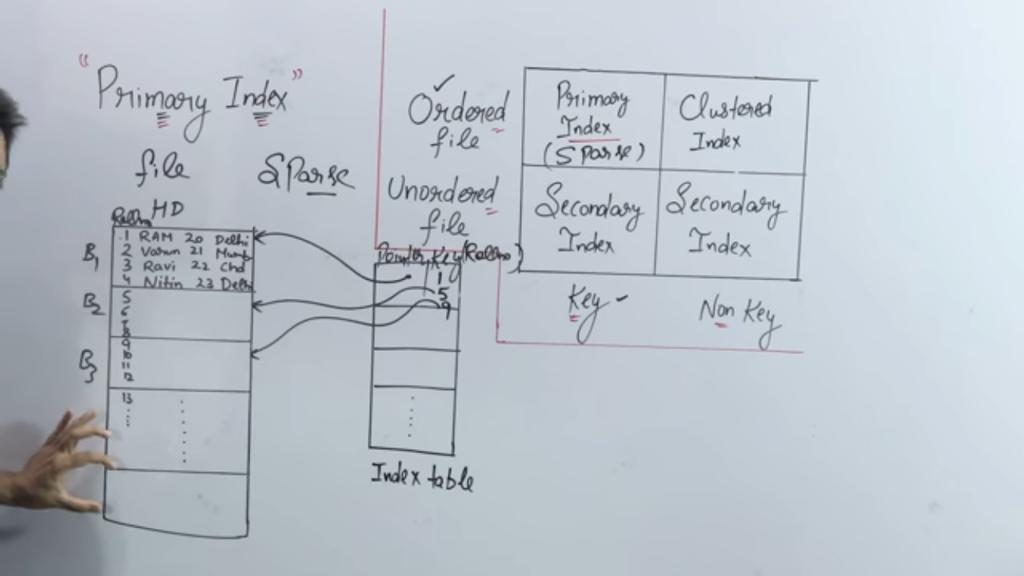 "Primary Index"
file SParse
HD
Rollno
B1
1 RAM 20 Delhi
2 Varun 21 Mumb
3 Ravi 22 Chd
4 Nitin 23 Delh
B2
5
6
7
8
B3
9
10
11
12
13
Pointer Key(Rollno)
1
5
9
Index table
Ordered file
Unordered file
Primary Index (SParse)
Clustered Index
Secondary Index
Secondary Index
Key
Non Key